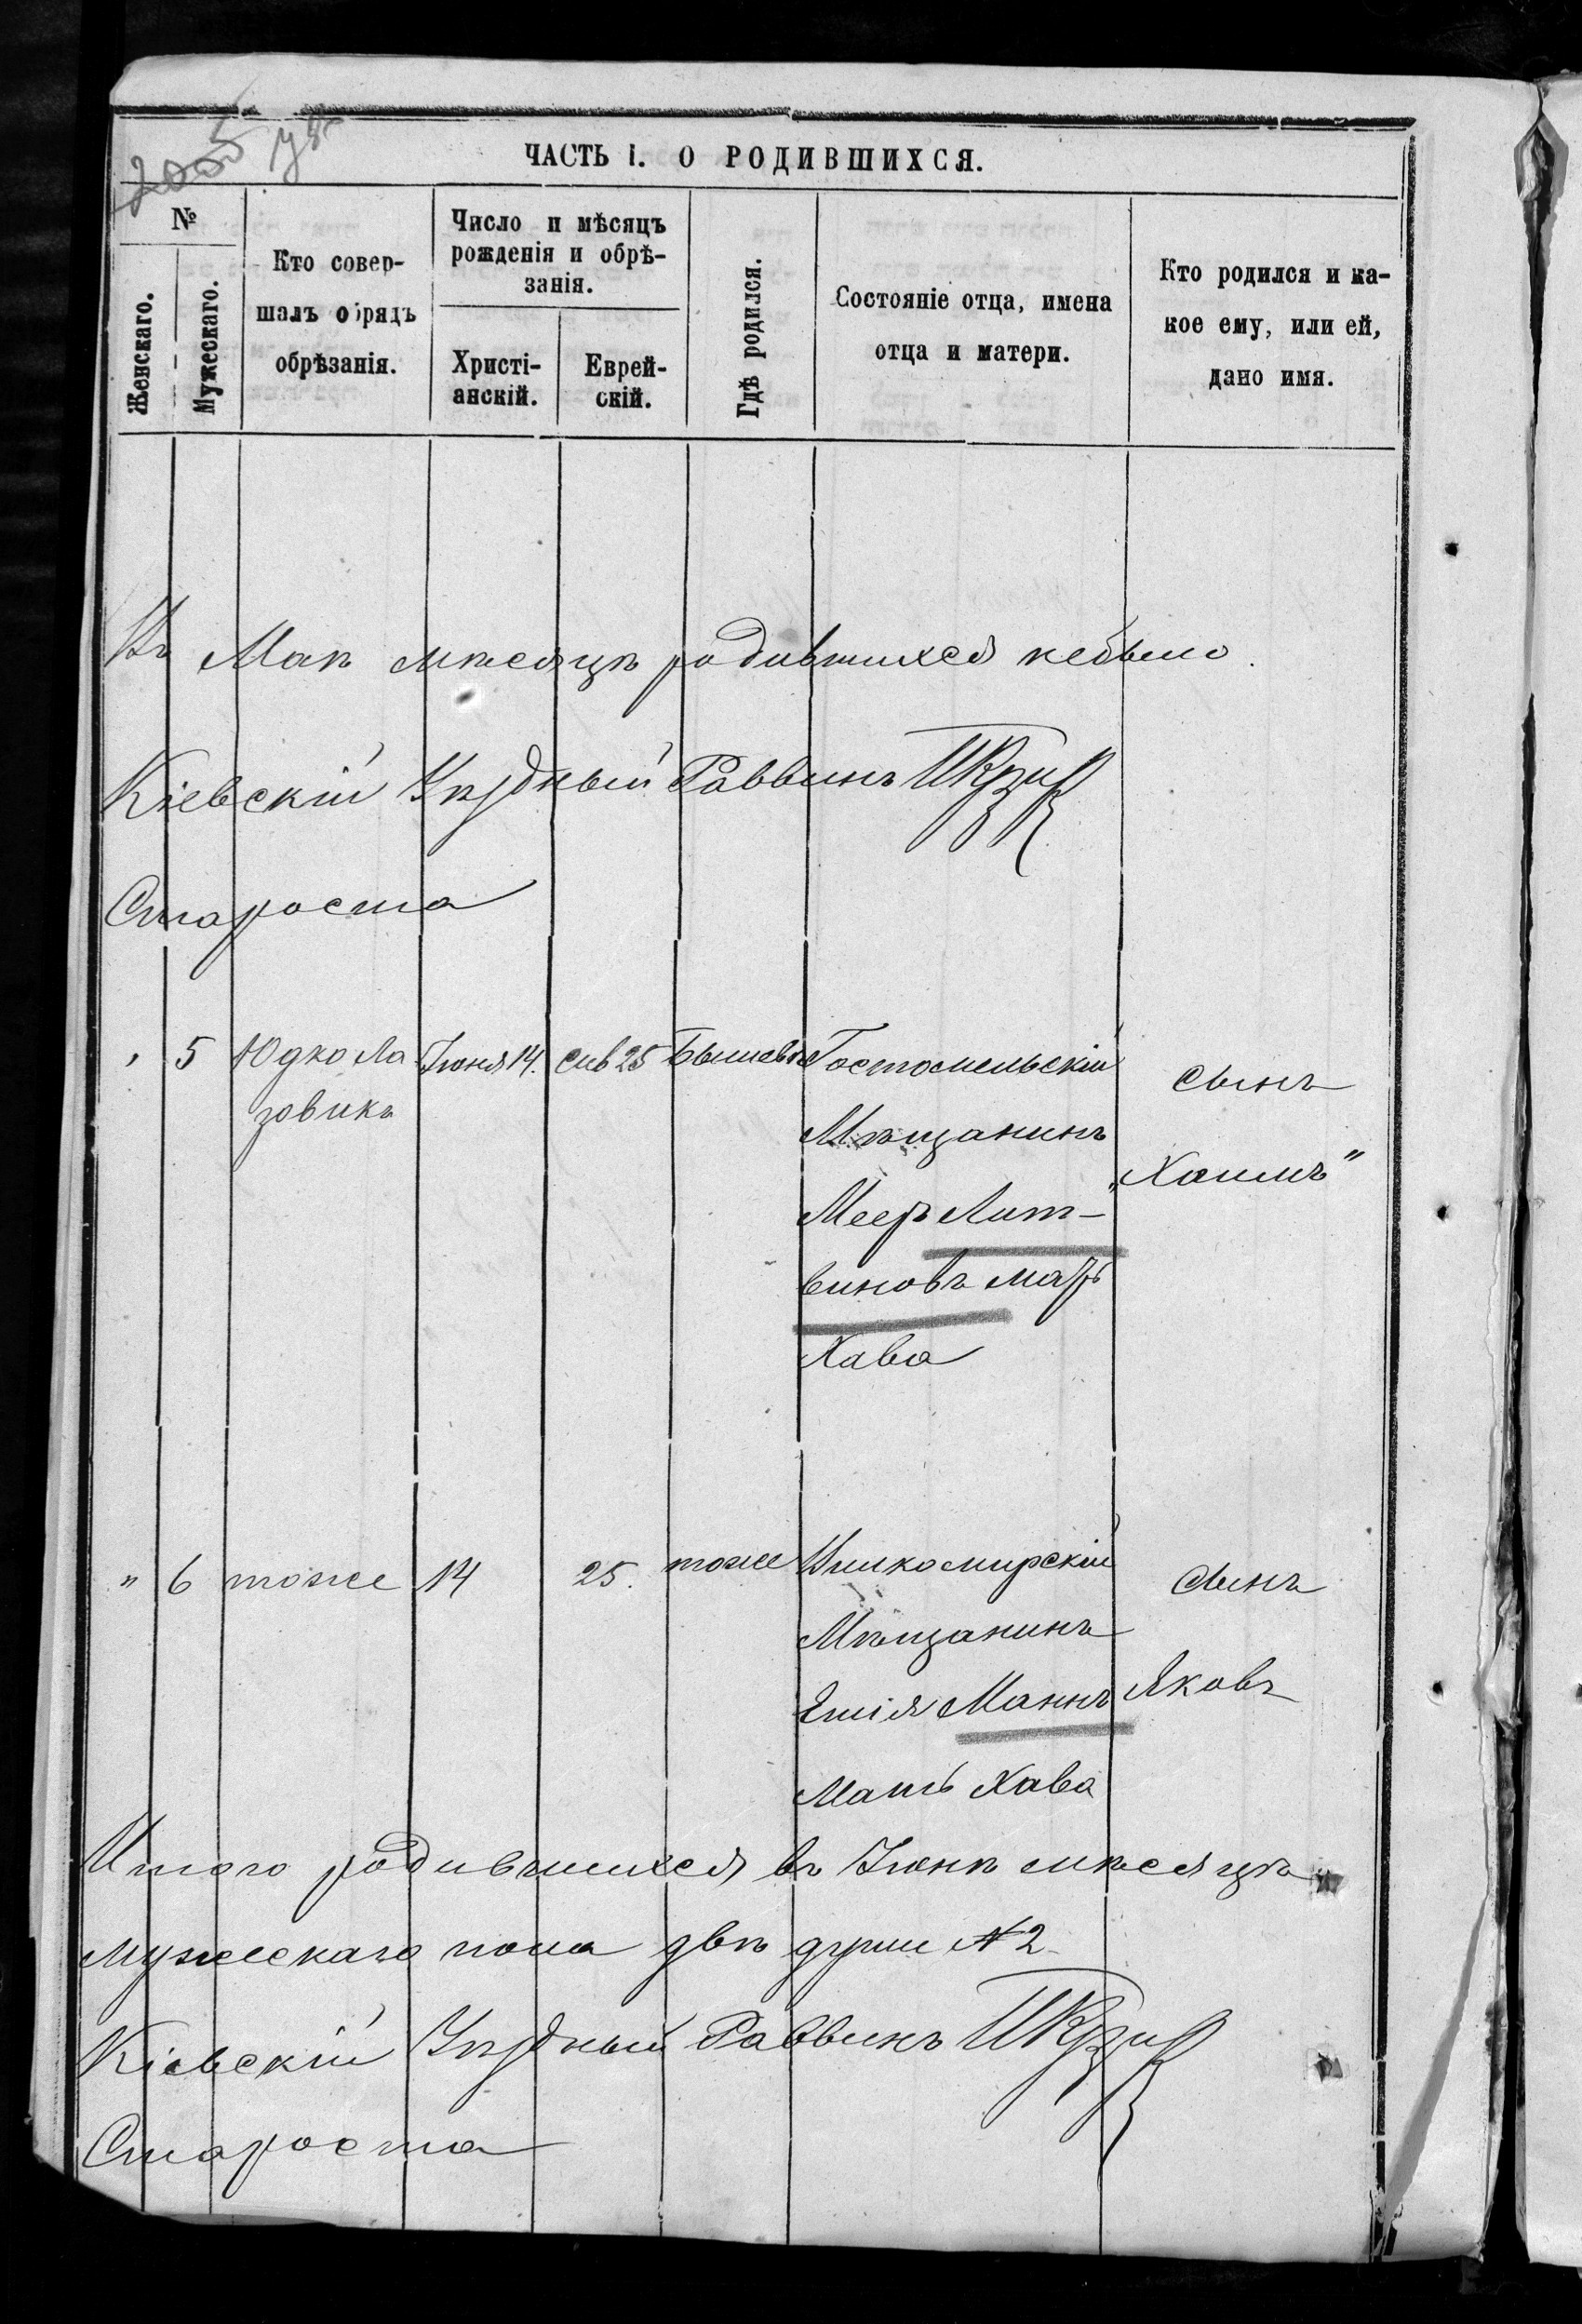 2005
ЧАСТЬ I. О РОДИВШИХСЯ.
№
Женскаго.
Мужескаго.
Кто совер-
шалъ обрядъ
обрѣзанія.
Число и мѣсяцъ
рожденія и обрѣ-
занія.
Христі-
анскій.
Еврей-
скій.
Гдѣ родился.
Состояніе отца, имена
отца и матери.
Кто родился и ка-
кое ему, или ей,
дано имя.
Въ Маѣ мѣсяцѣ родившихся небыло.
Кіевскій Уѣздный Раввинъ
Староста
" 5 Юдко Ла
зовикъ
Іюня 14.
Сив 25
Бышевѣ
Гостомельскій
Мѣщанинъ
Меер Лит-
виновъ мать
Хава
сынъ
„Хаимъ"
" 6 тоже 14 25. тоже
Вилкомирскій
Мѣщанинъ
Еліа Маннъ
Мать Хава
сынъ
Яковъ
Итого родившихся въ Іюнѣ мѣсяцѣ
мужескаго пола двѣ души № 2
Кіевскій Уѣздный Раввинъ
Староста